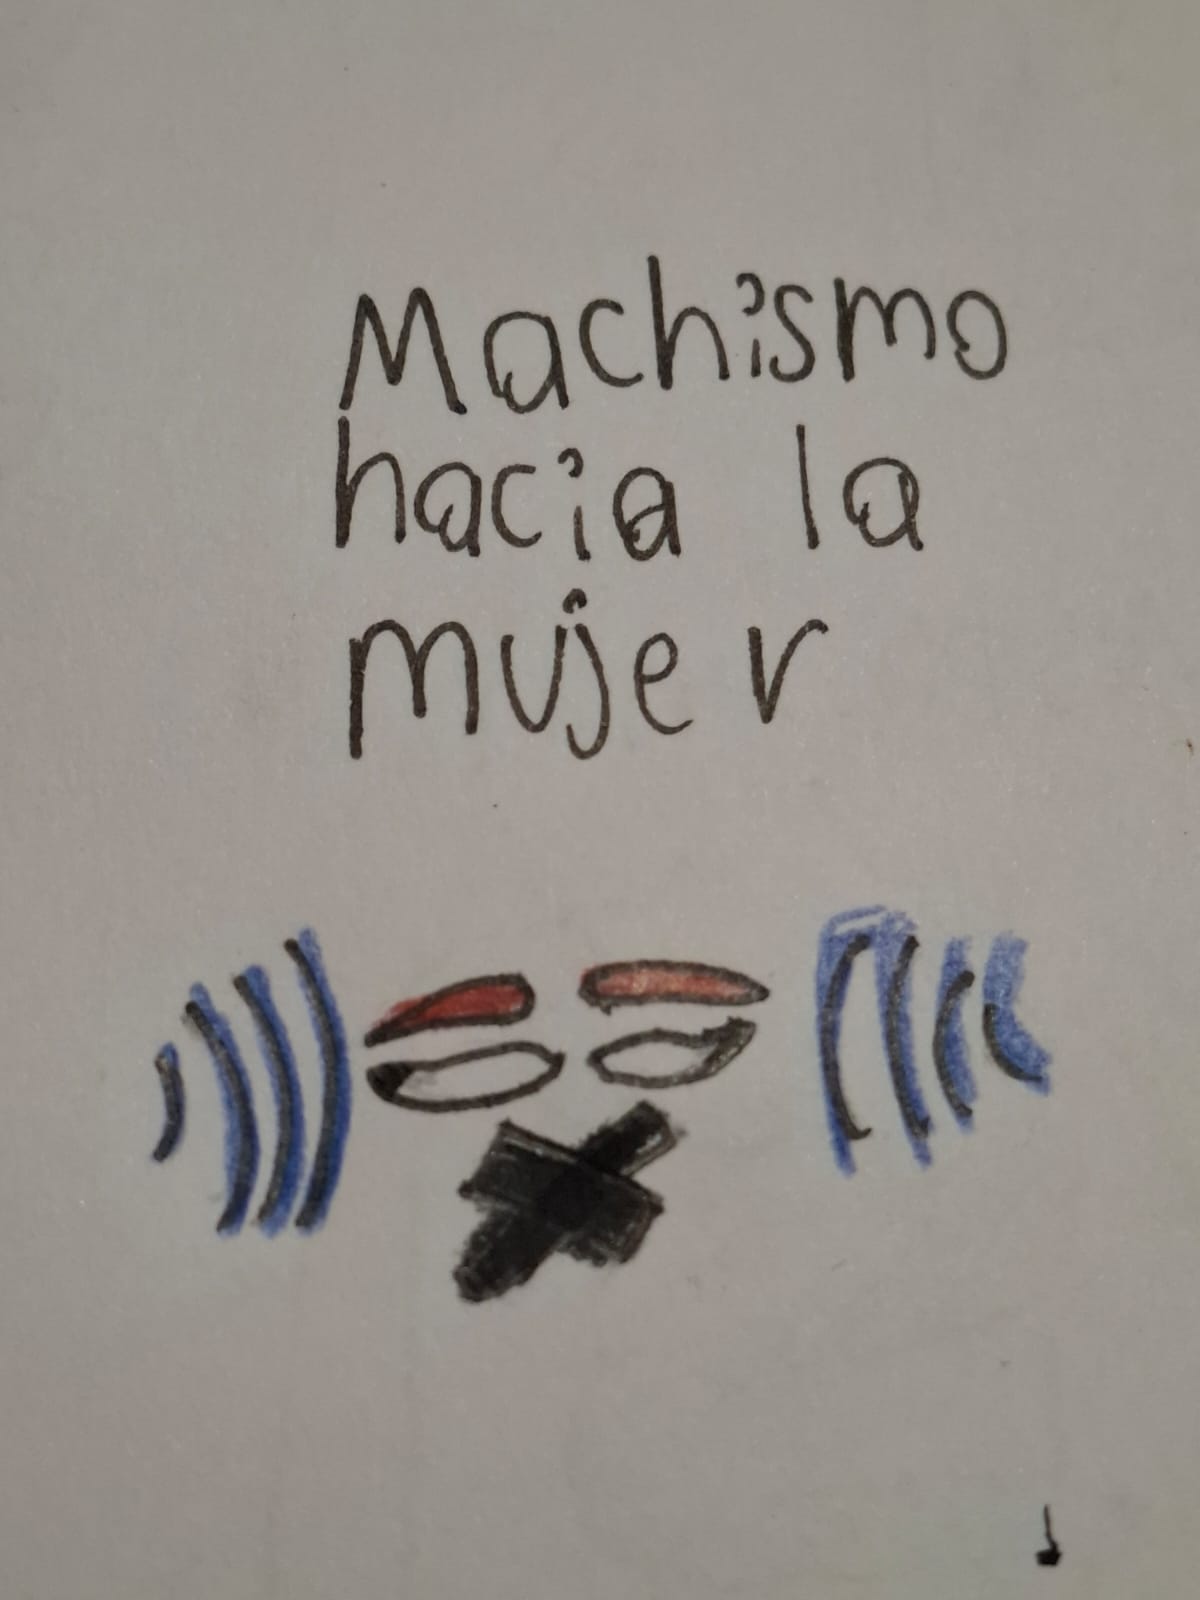 Machismo
hacia la
mujer